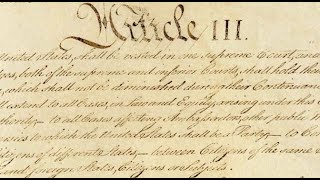 Article III.
United States, shall be vested in one supreme Court, and
both of the supreme and inferior Courts, shall hold their
which shall not be diminished during their Continuance
extend to all Cases, in Law and Equity, arising under this
to all Cases affecting Ambassadors, other public
to which the United States shall be a Party; to
of different States, between Citizens of the same
and foreign States, Citizens or Subjects.